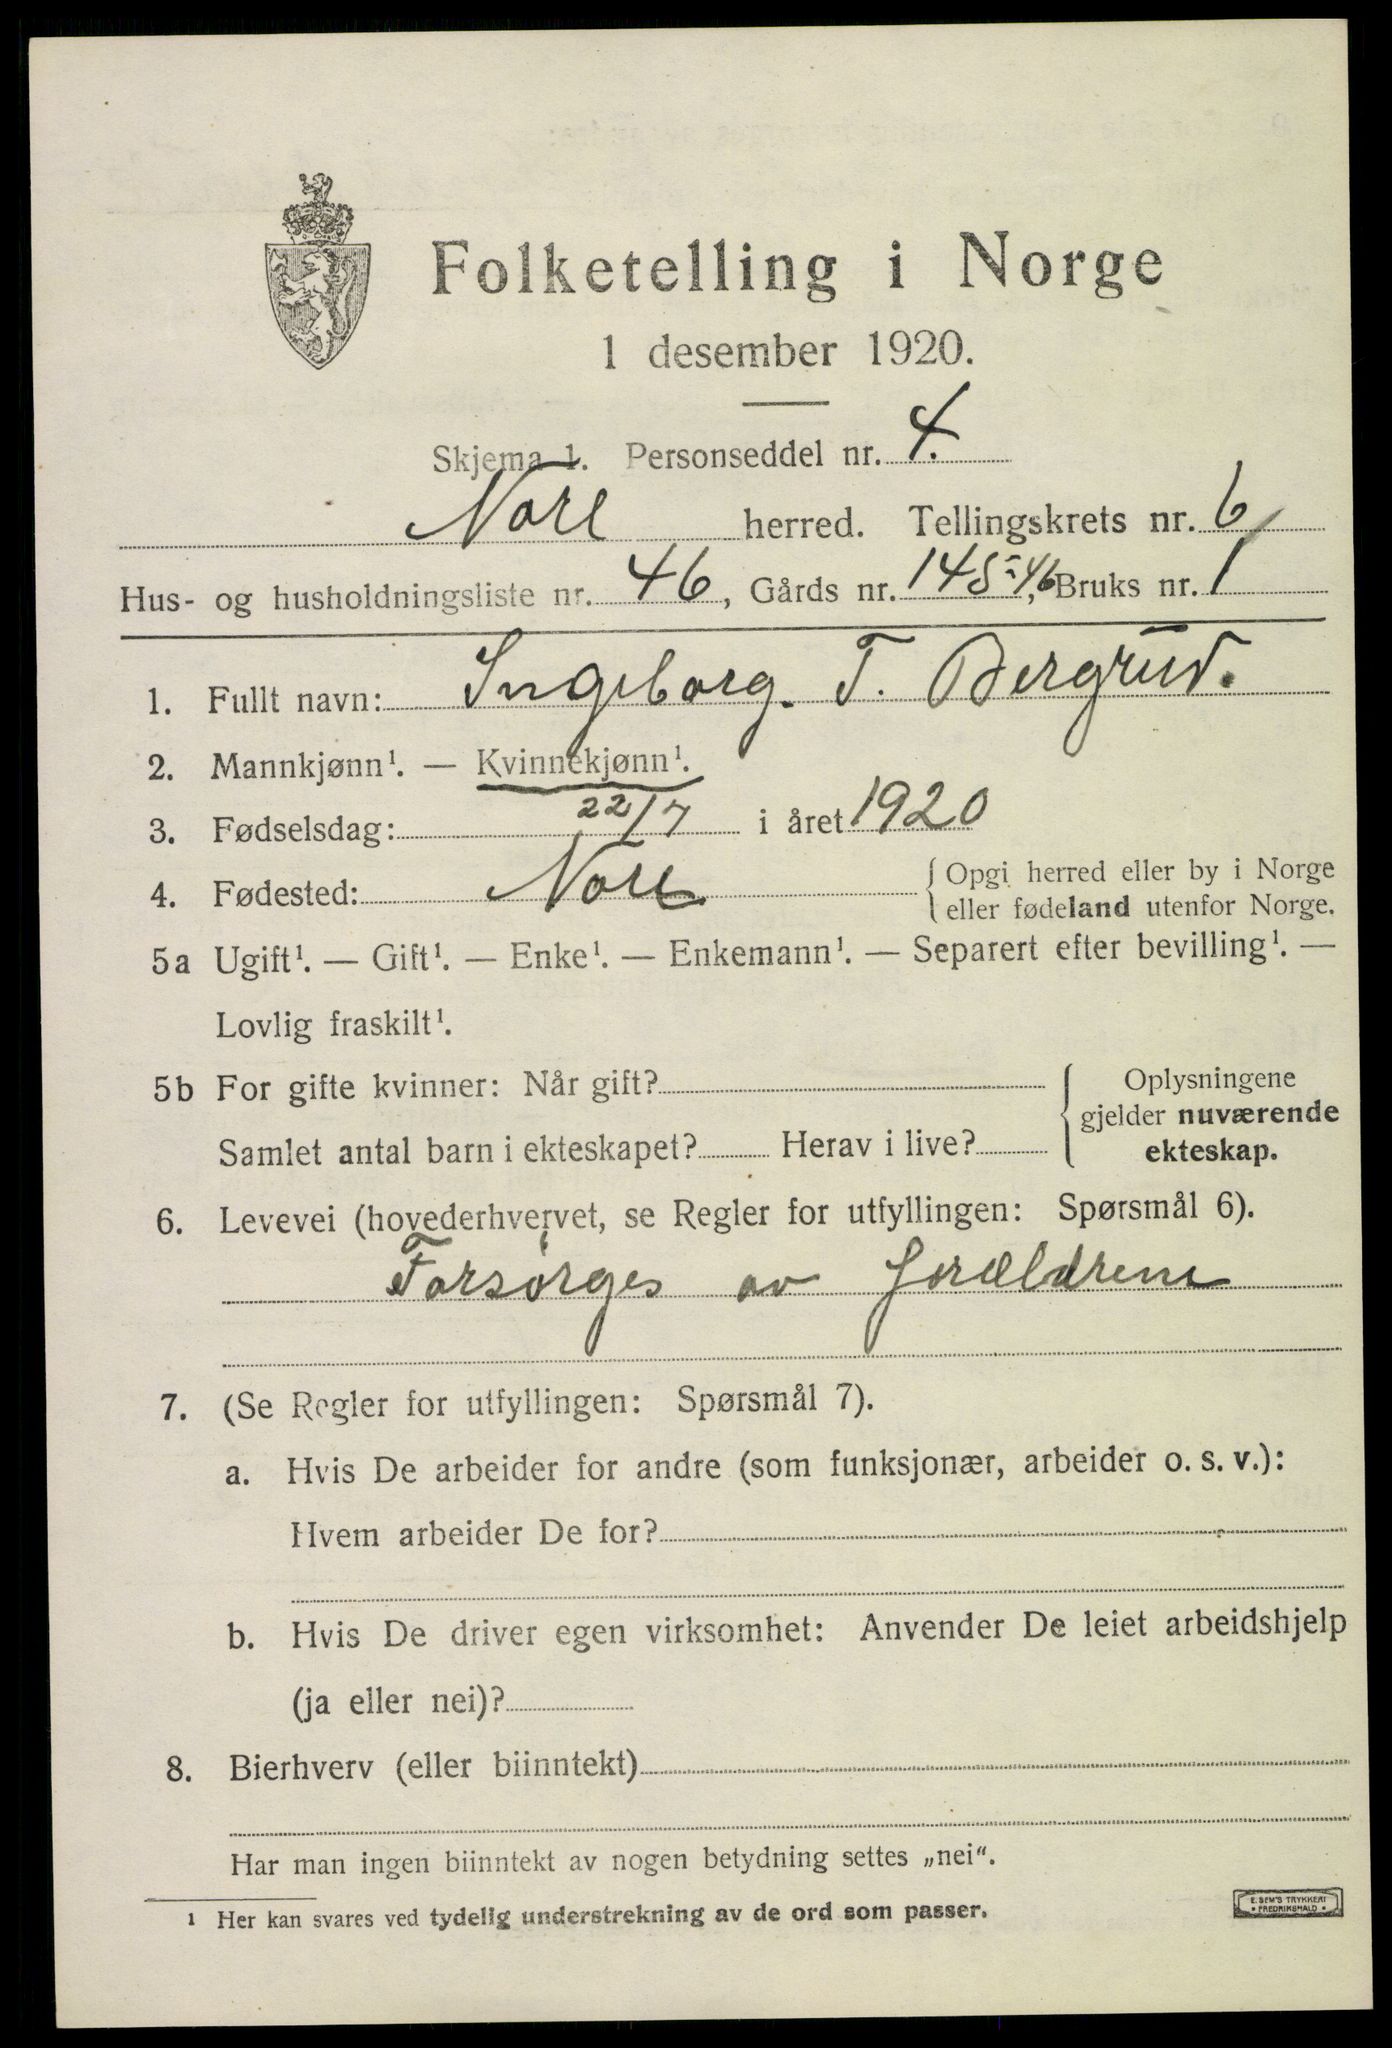 Folketelling i Norge
1 desember 1920.
Skjema 1. Personseddel nr. 4.
Nore herred. Tellingskrets nr. 6
Hus- og husholdningsliste nr. 46, Gårds nr. 145-46, Bruks nr. 1
1. Fullt navn: Ingeborg. T. Bergrud.
2. Mannkjønn¹. — Kvinnekjønn¹.
3. Fødselsdag: 22/7 i året 1920
4. Fødested: Nore { Opgi herred eller by i Norge
eller fødeland utenfor Norge.
5a Ugift¹. — Gift¹. — Enke¹. — Enkemann¹. — Separert efter bevilling¹. —
Lovlig fraskilt¹.
5b For gifte kvinner: Når gift?
Samlet antal barn i ekteskapet? Herav i live?
{ Oplysningene
gjelder nuværende
ekteskap.
6. Levevei (hovederhvervet, se Regler for utfyllingen: Spørsmål 6).
Forsørges av foreldrene
7. (Se Regler for utfyllingen: Spørsmål 7).
a. Hvis De arbeider for andre (som funksjonær, arbeider o. s. v.):
Hvem arbeider De for?
b. Hvis De driver egen virksomhet: Anvender De leiet arbeidshjelp
(ja eller nei)?
8. Bierhverv (eller biinntekt)
Har man ingen biinntekt av nogen betydning settes „nei“.
1 Her kan svares ved tydelig understrekning av de ord som passer.
E. SEM'S TRYKKERI
FREDRIKSHALD